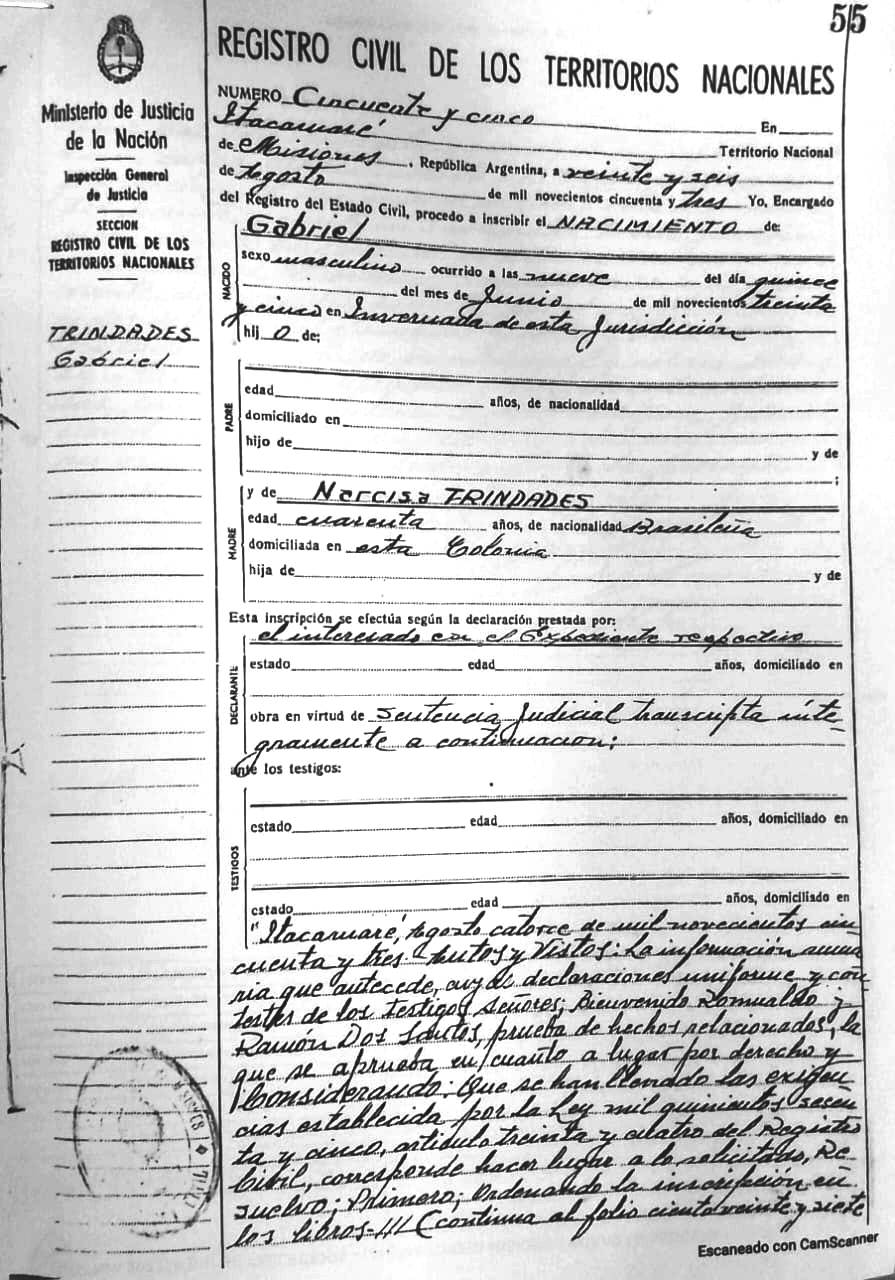 55
Ministerio de Justicia
de la Nación
Inspección General
de Justicia
SECCION
REGISTRO CIVIL DE LOS
TERRITORIOS NACIONALES
TRINDADES
Gabriel
REGISTRO CIVIL DE LOS TERRITORIOS NACIONALES
NUMERO Cincuenta y cinco En
Itacaruaré Territorio Nacional
de Misiones, República Argentina, a veinte y seis
de Agosto de mil novecientos cincuenta y tres Yo, Encargado
del Registro del Estado Civil, procedo a inscribir el NACIMIENTO de:
Gabriel
NACIDO
sexo masculino ocurrido a las nueve del día quince
del mes de Junio de mil novecientos treinta
y cinco en Invernada de esta Jurisdicción
hij o de:
PADRE
edad años, de nacionalidad
domiciliado en
hijo de y de
;
MADRE
y de Narcisa TRINDADES
edad cuarenta años, de nacionalidad Brasileña
domiciliada en esta Colonia
hija de y de
Esta inscripción se efectúa según la declaración prestada por:
el interesado con el Expediente respectivo
DECLARANTE
estado edad años, domiciliado en
obra en virtud de Sentencia Judicial transcripta ínte-
gramente a continuacion;
ante los testigos:
TESTIGOS
estado edad años, domiciliado en
estado edad años, domiciliado en
"Itacaruaré, Agosto catorce de mil novecientos cin-
cuenta y tres. Autos y Vistos: La información suma-
ria que antecede, cuyas declaraciones uniforme y con-
testes de los testigos Señores; Bienvenido Romualdo y
Ramón Dos Santos, prueba de hechos relacionados, la
que se aprueba en cuanto a lugar por derecho y
Considerando: Que se han llenado las exigen-
cias establecida por la Ley mil quinientos sesen-
ta y cinco, artidulo treinta y cuatro del Registro
Civil, corresponde hacer lugar a lo solicitado, Re-
suelvo; Primero; Ordenando la inscripción en
los libros-/// (continua al folio ciento veinte y siete
Escaneado con CamScanner